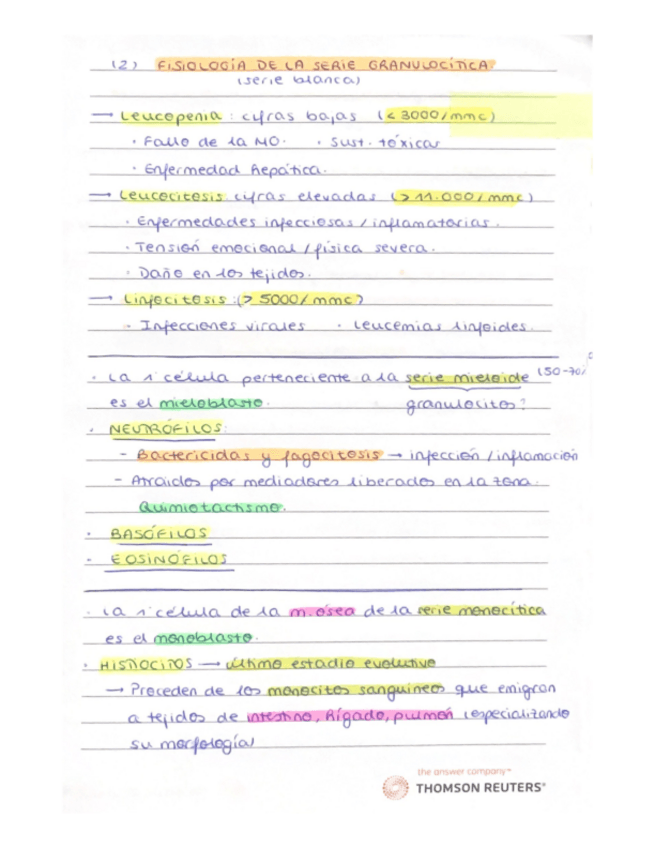 (2) FISIOLOGÍA DE LA SERIE GRANULOCÍTICA.
(serie blanca)
→ Leucopenia: cifras bajas (<3000/mmc)
· Fallo de la MO. · Sust. tóxicas
· Enfermedad hepática.
→ Leucocitosis cifras elevadas (>11.000/mmc)
· Enfermedades infecciosas/inflamatorias.
· Tensión emocional/física severa.
· Daño en los tejidos.
→ Linfocitosis: (>5000/mmc)
· Infecciones virales · Leucemias linfoides.
· La 1ª célula perteneciente a la serie mieloide (50-70%
es el mieloblasto. granulocitos?
· NEUTRÓFILOS:
- Bactericidas y fagocitosis → infección/inflamación
- Atraidos por mediadores liberados en la zona.
Quimiotactismo.
· BASÓFILOS
· EOSINÓFILOS
· La 1ª célula de la m. ósea de la serie monocítica
es el monoblasto.
· HISTIOCITOS → último estadio evolutivo
→ Proceden de los monocitos sanguíneos que emigran
a tejidos de intestino, hígado, pulmón (especializando
su morfología)
the answer company™
THOMSON REUTERS®